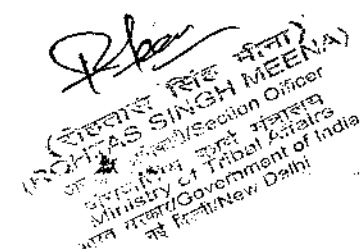 (रोहतास सिंह मीना)
(ROHTAS SINGH MEENA)
अधिकारी/Section Officer
जनजातीय कार्य मंत्रालय
Ministry of Tribal Affairs
भारत सरकार/Government of India
नई दिल्ली/New Delhi